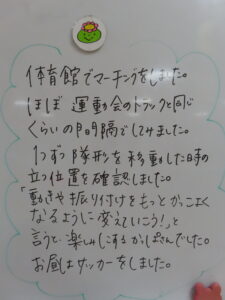 体育館でマーチングをしました。
ほぼ運動会のトラックと同じ
くらいの間隔でしてみました。
1つずつ隊形を移動した時の
立つ位置を確認しました。
「動きや振り付けをもっとかっこよく
なるように変えていこう!」と
言うと、楽しみにするかっぱさんでした。
お昼はサッカーをしました。